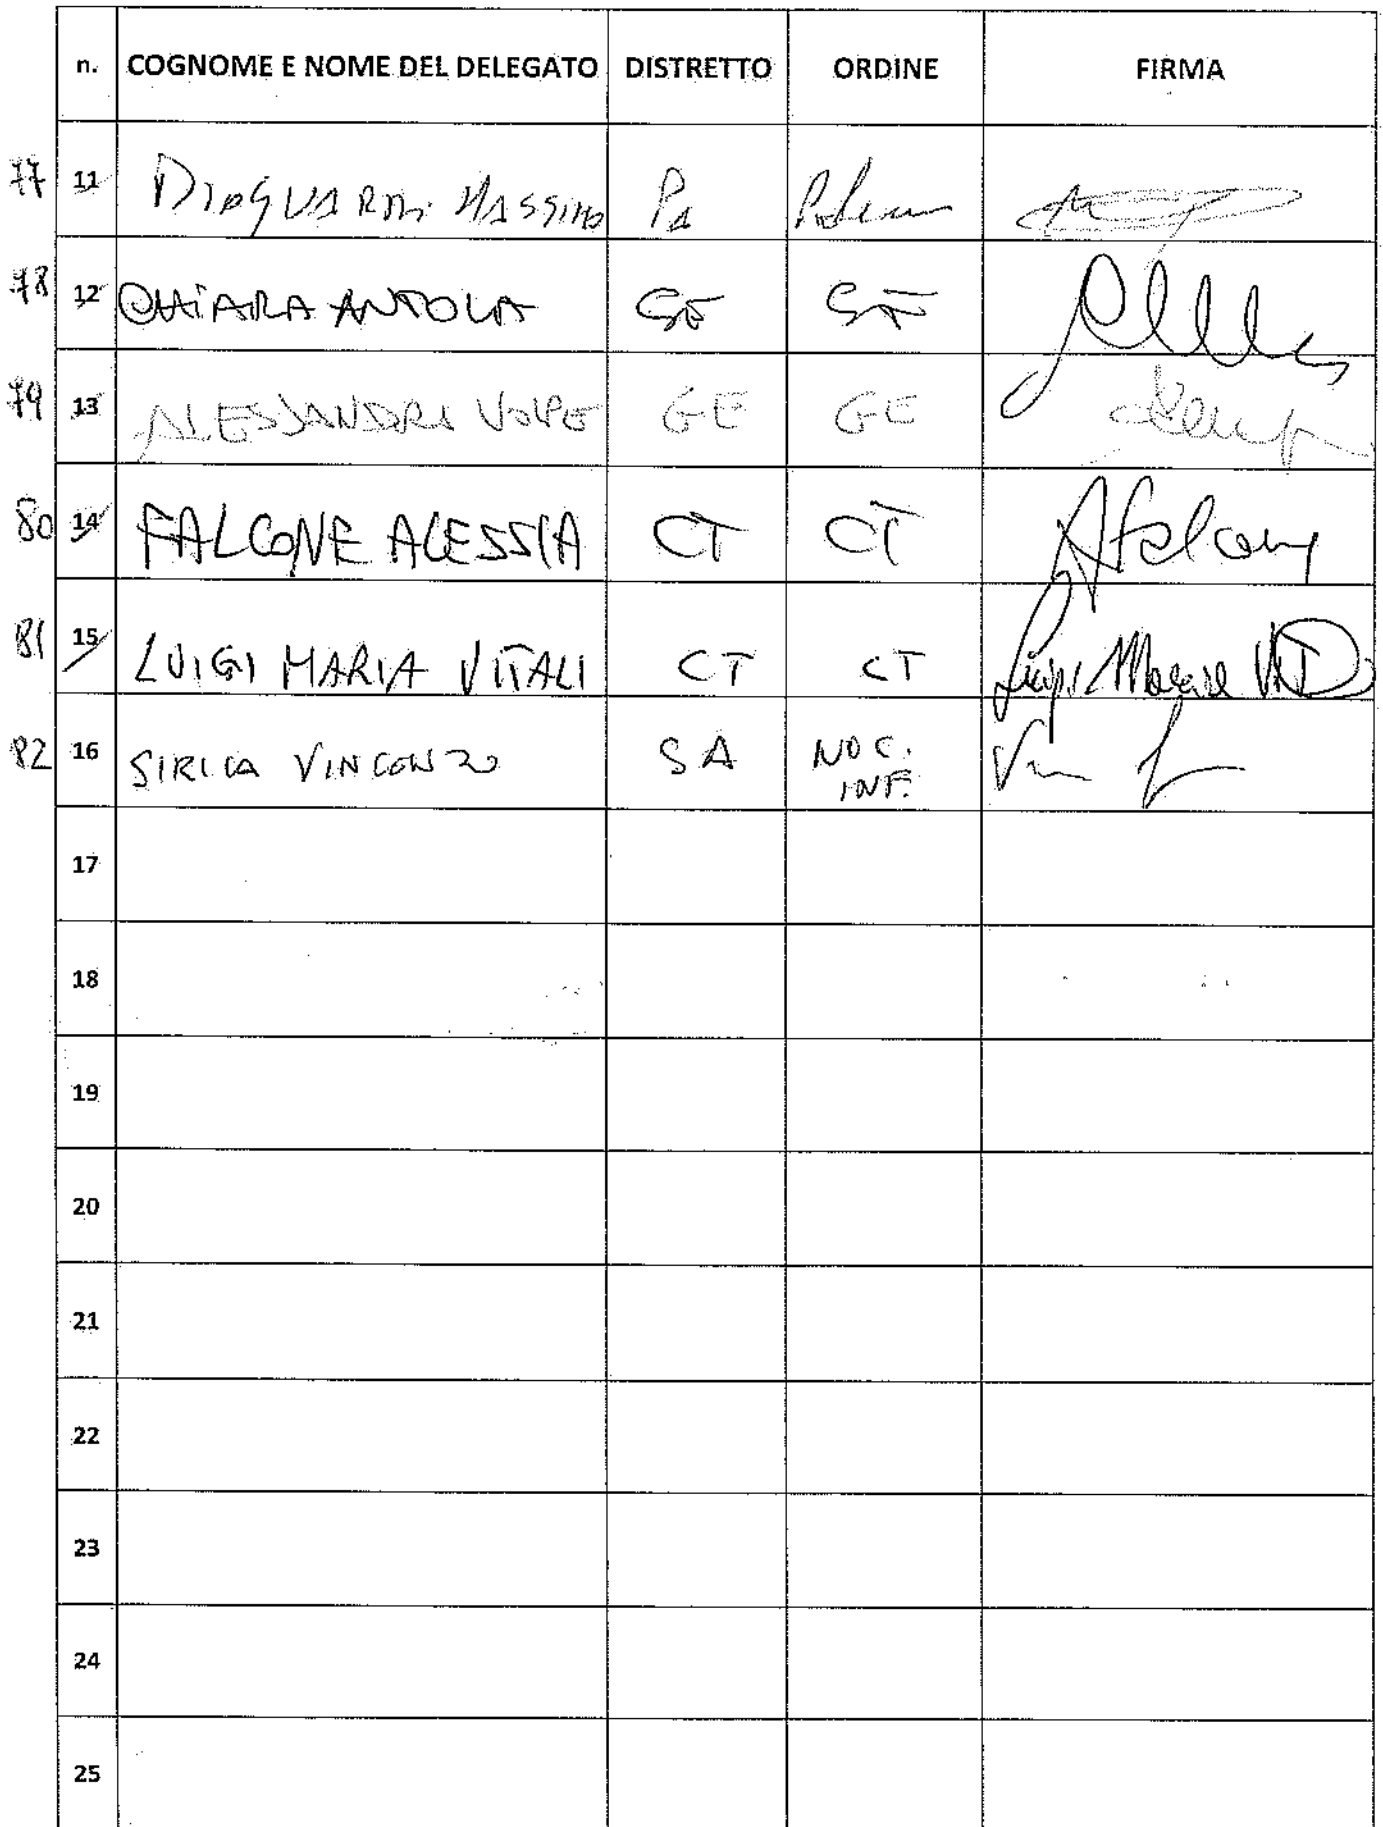 n. COGNOME E NOME DEL DELEGATO DISTRETTO ORDINE FIRMA
77 11 DIOGUARDI MASSIMO PA
78 12 CHIARA ANTOLA GE GE
79 13 ALESSANDRA VOLPE GE GE
80 14 FALCONE ALESSIA CT CT AFalcone
81 15 LUIGI MARIA VITALI CT CT Luigi Maria
82 16 SIRICA VINCENZO SA NOC.
INF.
17
18
19
20
21
22
23
24
25